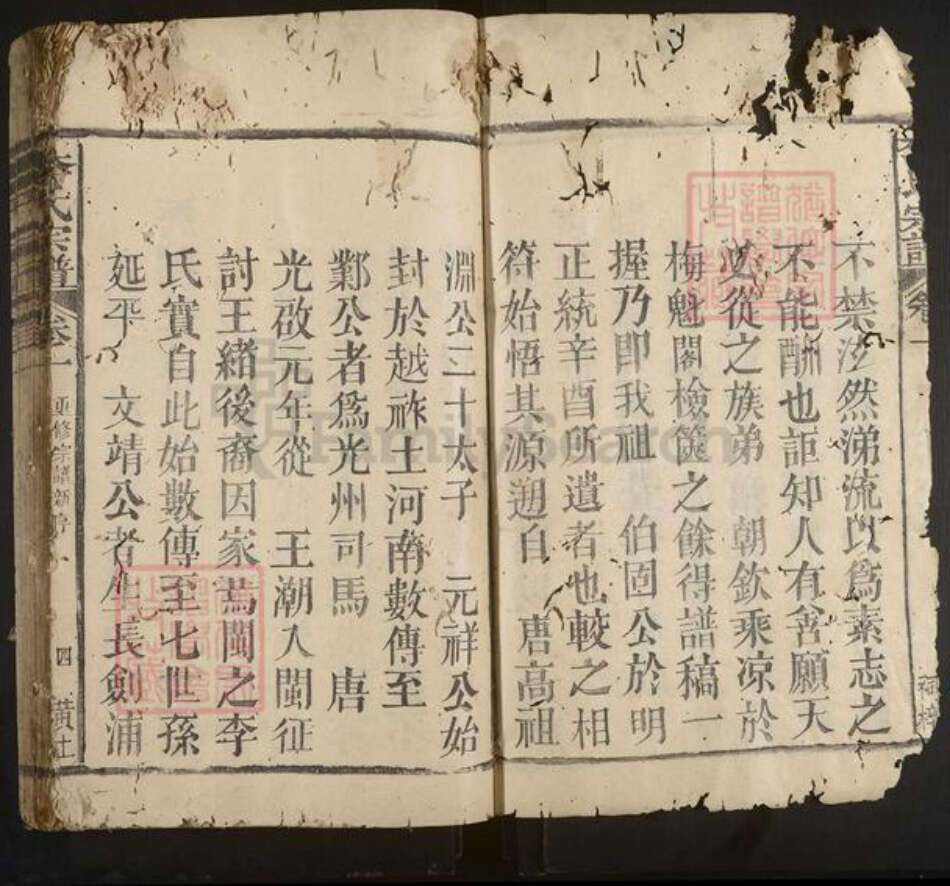 不禁泫然涕流以爲素志之
不能酬也詎知人有舍願天
必從之族弟 朝欽乘凉於
梅魁閣檢篋之餘得譜稿一
握乃即我祖 伯固公於明
正統辛酉所遺者也較之相
符始悟其源遡自 唐高祖
淵公二十太子 元祥公始
封於越祚土河南數傳至
鄴公者爲光州司馬 唐
光啟元年從 王潮入閩征
討王緒後裔因家焉閩之李
氏實自此始數傳至七世孫
延平 文靖公者生長劍浦
李氏宗譜 卷一 重修宗譜新序 四
FamilySearch